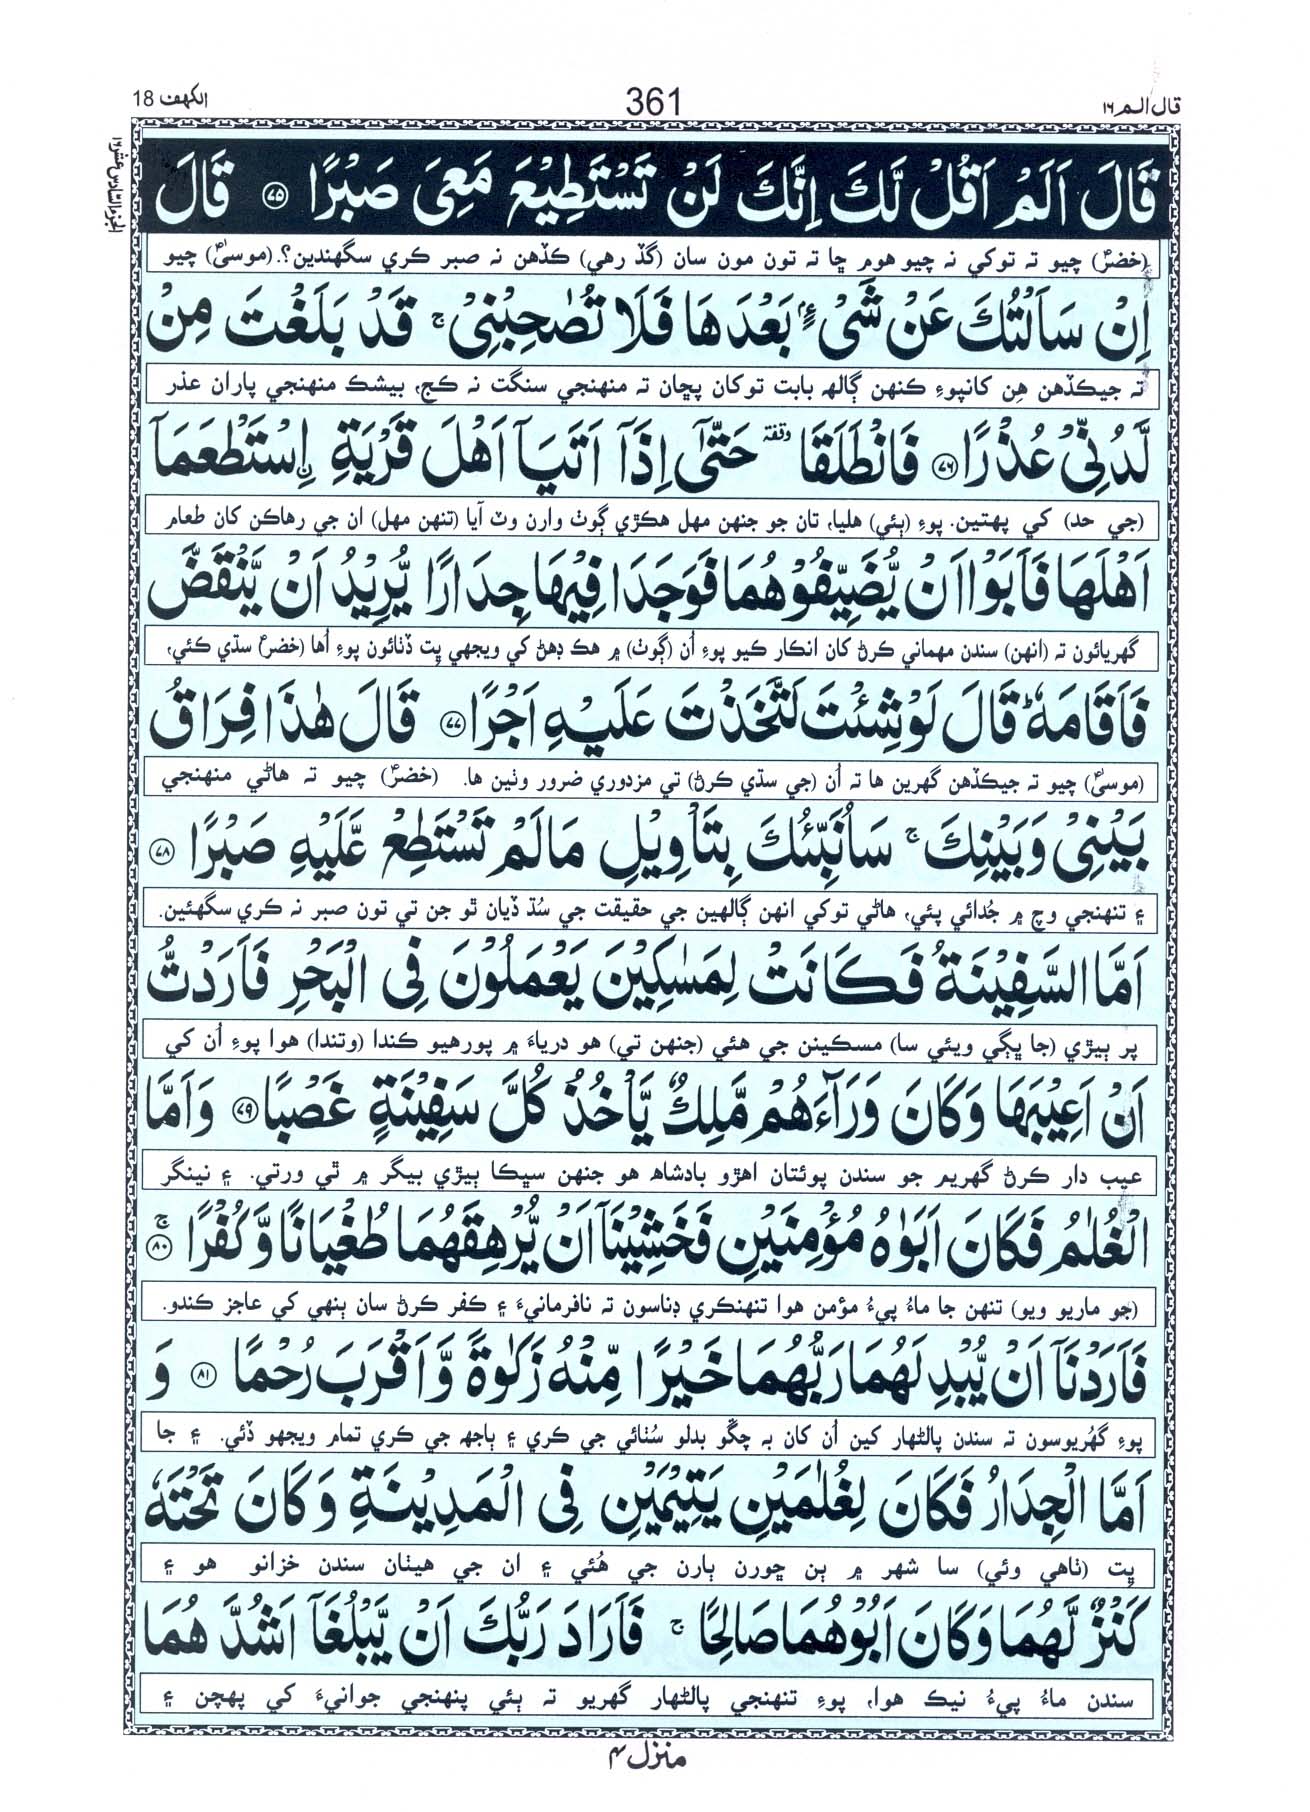 الكهف 18
361
قال الم ١٦
الجزء السادس عشر ١٦
قَالَ اَلَمْ اَقُلْ لَّكَ اِنَّكَ لَنْ تَسْتَطِيْعَ مَعِيَ صَبْرًا ۝٧٥ قَالَ
(خضرؑ) چيو تہ توکي نہ چيو هوم ڇا تہ تون مون سان (گڏ رهي) ڪڏهن نہ صبر ڪري سگهندين؟. (موسيٰؑ) چيو
اِنْ سَاَلْتُكَ عَنْ شَيْءٍۭ بَعْدَهَا فَلَا تُصٰحِبْنِيْ ۚ قَدْ بَلَغْتَ مِنْ
تہ جيڪڏهن هِن کانپوءِ ڪنهن ڳالهہ بابت توکان پڇان تہ منهنجي سنگت نہ ڪج، بيشڪ منهنجي پاران عذر
لَّدُنِّيْ عُذْرًا ۝٧٦ فَانْطَلَقَا ۥوقفۃ حَتّٰۤى اِذَاۤ اَتَيَاۤ اَهْلَ قَرْيَةِ ۨاسْتَطْعَمَاۤ
(جي حد) کي پهتين. پوءِ (ٻئي) هليا، تان جو جنهن مهل هڪڙي ڳوٺ وارن وٽ آيا (تنهن مهل) ان جي رهاڪن کان طعام
اَهْلَهَا فَاَبَوْا اَنْ يُّضَيِّفُوْهُمَا فَوَجَدَا فِيْهَا جِدَارًا يُّرِيْدُ اَنْ يَّنْقَضَّ
گهريائون تہ (انهن) سندن مهماني ڪرڻ کان انڪار ڪيو پوءِ اُن (ڳوٺ) ۾ هڪ ڊهڻ کي ويجهي ڀت ڏٺائون پوءِ اُها (خضرؑ سڌي ڪئي،
فَاَقَامَهٗ ؕ قَالَ لَوْ شِئْتَ لَتَّخَذْتَ عَلَيْهِ اَجْرًا ۝٧٧ قَالَ هٰذَا فِرَاقُ
(موسيٰؑ) چيو تہ جيڪڏهن گهرين ها تہ اُن (جي سڌي ڪرڻ) تي مزدوري ضرور وٺين ها. (خضرؑ) چيو تہ هاڻي منهنجي
بَيْنِيْ وَبَيْنِكَ ۚ سَاُنَبِّئُكَ بِتَاْوِيْلِ مَا لَمْ تَسْتَطِعْ عَّلَيْهِ صَبْرًا ۝٧٨
۽ تنهنجي وچ ۾ جُدائي پئي، هاڻي توکي انهن ڳالهين جي حقيقت جي سُڌ ڏيان ٿو جن تي تون صبر نہ ڪري سگهئين.
اَمَّا السَّفِيْنَةُ فَكَانَتْ لِمَسٰكِيْنَ يَعْمَلُوْنَ فِي الْبَحْرِ فَاَرَدْتُّ
پر ٻيڙي (جا ڀڳي ويئي سا) مسڪينن جي هئي (جنهن تي) هو درياءَ ۾ پورهيو ڪندا (وتندا) هوا پوءِ اُن کي
اَنْ اَعِيْبَهَا وَكَانَ وَرَآءَهُمْ مَّلِكٌ يَّاْخُذُ كُلَّ سَفِيْنَةٍ غَصْبًا ۝٧٩ وَاَمَّا
عيب دار ڪرڻ گهريم جو سندن پوئتان اهڙو بادشاهہ هو جنهن سڀڪا ٻيڙي بيگر ۾ ٿي ورتي. ۽ نينگر
الْغُلٰمُ فَكَانَ اَبَوٰهُ مُؤْمِنَيْنِ فَخَشِيْنَاۤ اَنْ يُّرْهِقَهُمَا طُغْيَانًا وَّكُفْرًا ۝٨٠ ۚ
(جو ماريو ويو) تنهن جا ماءُ پيءُ مؤمن هوا تنهنڪري ڊناسون تہ نافرمانيءَ ۽ ڪفر ڪرڻ سان ٻنهي کي عاجز ڪندو.
فَاَرَدْنَاۤ اَنْ يُّبْدِلَهُمَا رَبُّهُمَا خَيْرًا مِّنْهُ زَكٰوةً وَّاَقْرَبَ رُحْمًا ۝٨١ وَ
پوءِ گهُريوسون تہ سندن پالڻهار کين اُن کان بہ چڱو بدلو سُٺائي جي ڪري ۽ ٻاجهہ جي ڪري تمام ويجهو ڏئي. ۽ جا
اَمَّا الْجِدَارُ فَكَانَ لِغُلٰمَيْنِ يَتِيْمَيْنِ فِي الْمَدِيْنَةِ وَكَانَ تَحْتَهٗ
ڀِت (ٺاهي وئي) سا شهر ۾ ٻن ڇورن ٻارن جي هُئي ۽ ان جي هيٺان سندن خزانو هو ۽
كَنْزٌ لَّهُمَا وَكَانَ اَبُوْهُمَا صَالِحًا ۚ فَاَرَادَ رَبُّكَ اَنْ يَّبْلُغَاۤ اَشُدَّهُمَا
سندن ماءُ پيءُ نيڪ هوا، پوءِ تنهنجي پالڻهار گهريو تہ ٻئي پنهنجي جوانيءَ کي پهچن ۽
منزل ۴